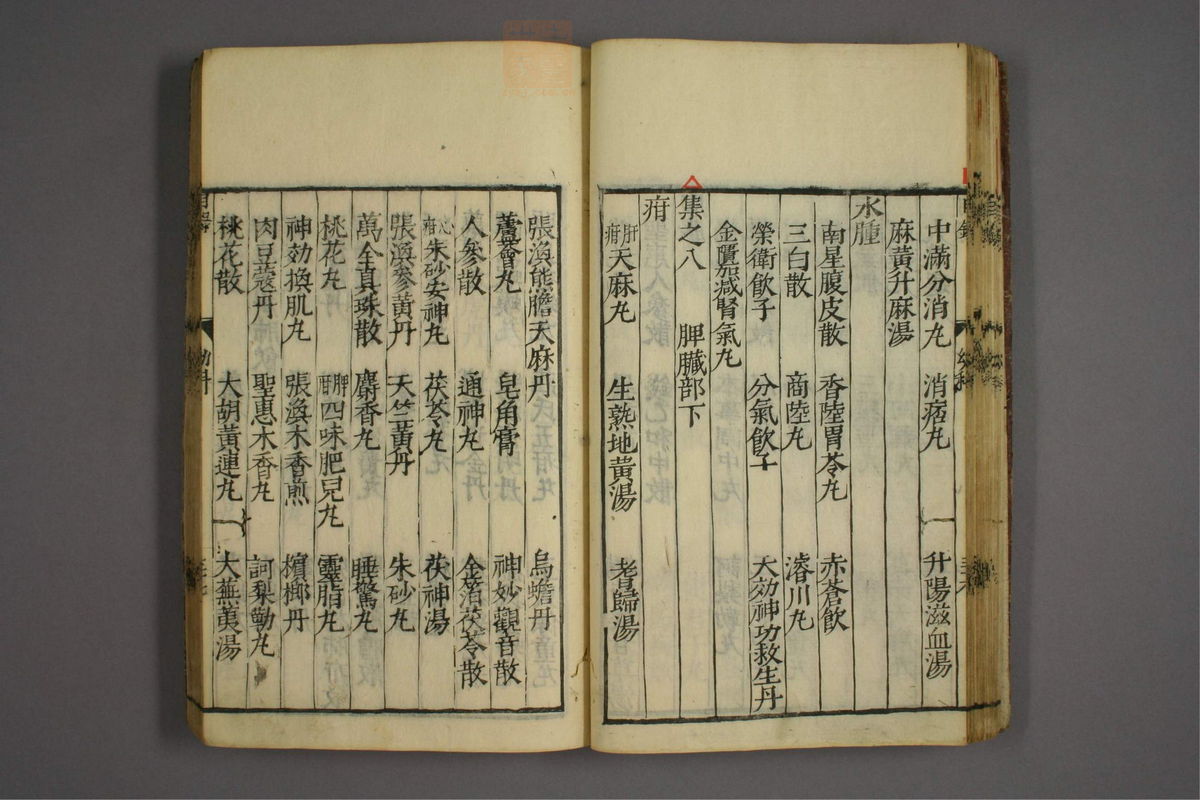 中滿分消丸 消痞丸 升陽滋血湯
麻黃升麻湯
水腫
南星腹皮散 香陸胃苓丸 赤苓飲
三白散 商陸丸 濬川丸
榮衛飲子 分氣飲子 大效神功救生丹
金匱加減腎氣丸
集之八 脾臟部下
疳
肝疳天麻丸 生熟地黃湯 耆歸湯
張渙熊膽天麻丹 烏蟾丹
蘆薈丸 皂角膏 神妙觀音散
人參散 通神丸 金箔茯苓散
心疳朱砂安神丸 茯苓丸 茯神湯
張渙參黃丹 天竺黃丹 朱砂丸
萬全真珠散 麝香丸 睡驚丸
桃花丸 脾疳四味肥兒丸 靈脂丸
神効換肌丸 張渙木香煎 檳榔丹
肉豆蔻丹 聖惠木香丸 訶梨勒丸
桃花散 大胡黃連丸 大蕪荑湯